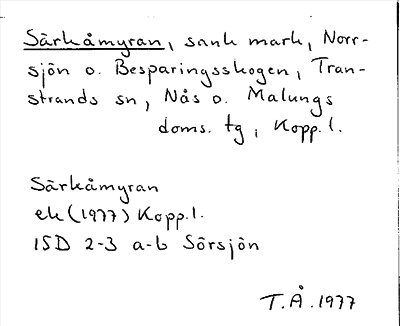 Särkåmyran, sank mark, Norr-
sjön o. Besparingsskogen, Tran-
strands sn, Nås o. Malungs
doms. tg, Kopp. l.
Särkåmyran
ek (1977) Kopp. l.
15D 2-3 a-b Sörsjön
T.Å. 1977